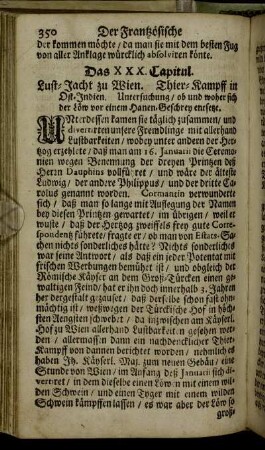 350 Der Frantzösische
der kommen möchte / da man sie mit dem besten Fug
von aller Anklage würcklich absolviren könte.
Das XXX. Capitul.
Lust-Jacht zu Wien. Thier-Kampff in
Ost-Indien. Untersuchung / ob und woher sich
der Löw vor einem Hanen-Geschrey entsetze.
UNterdessen kamen sie täglich zusammen / und
divertirten unsere Frembdlinge mit allerhand
Lustbarkeiten / wobey unter andern der Her-
tzog erzehlete / daß man am 16. Januarii die Ceremo-
nien wegen Benennung der dreyen Printzen deß
Herrn Dauphins vollführet / und wäre der älteste
Ludwig / der andere Philippus / und der dritte Ca-
rolus genannt worden. Cormantin verwunderte
sich / daß man so lange mit Aufflegung der Namen
bey diesen Printzen gewartet / im übrigen / weil er
wuste / daß der Hertzog zweiffels frey gute Corre-
spondentz führete / fragte er / ob man von Estats-Sa-
chen nichts sonderliches hätte? Nichts sonderliches
war seine Antwort / als daß ein jeder Potentat mit
frischen Werbungen bemühet ist / und obgleich der
Römische Käyser an dem Groß-Türcken einen ge-
waltigen Feind / hat er ihn doch innerhalb 3. Jahren
her dergestalt gezauset / daß derselbe schon fast ohn-
mächtig ist / weßwegen der Türckische Hof in höch-
sten Aengsten schwebet / da inzwischen am Käyserl.
Hof zu Wien allerhand Lustbarkeiten gesehen wer-
den / allermassen dann ein nachdencklicher Thier-
Kampff von dannen berichtet worden / nehmlich es
haben Ihr. Käyserl. Maj. zum neuen Gebäu / eine
Stunde von Wien / im Anfang deß Januarii sich di-
vertiret / in dem dieselbe einen Löwen mit einem wil-
den Schwein / und einen Tyger mit einem wilden
Schwein kämpffen lassen / es war aber der Löw so
groß-